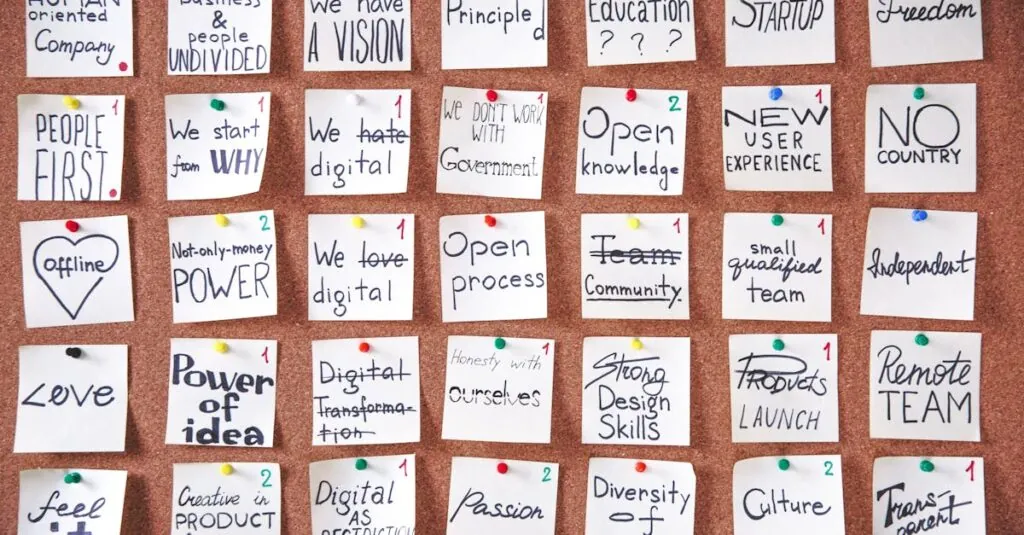 HUMAN
oriented
Company
Business
&
people
UNDIVIDED
We have
A VISION
Principle
d
Education
? ? ?
STARTUP
Freedom
1
PEOPLE
FIRST
1
We start
from WHY
1
We hate
digital
1
We DON'T WORK
WITH
Government
2
Open
knowledge
1
NEW
USER
EXPERIENCE
NO
COUNTRY
offline
2
Not-only-money
POWER
1
We love
digital
Open
process
1
Team
Community
1
small
qualified
team
Independent
Love
1
Power
of
idea
Digital
Transforma-
tion
1
Honesty with
ourselves
Strong
Design
Skills
1
Products
LAUNCH
Remote
TEAM
feel
it
2
Creative in
PRODUCT
1
Digital
AS
2
Passion
Diversity
of
2
Culture
1
Trans-
parent